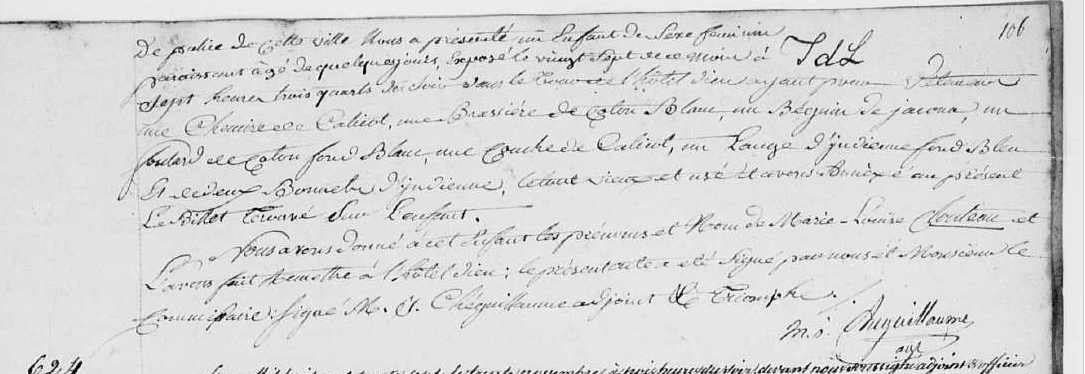 106
De police de cette ville Nous a présenté un Enfant du Sexe féminin
paraissant âgé de quelques jours, Exposé le vingt Sept de ce mois à JdL
Sept heures trois quarts du Soir dans le Trou de l'hôtel dieu ayant pour Vêtemens
une Chemise de Calicot, une Brassière de Coton Blanc, un Béguin de jacona, un
foulard de Coton fond Blanc, une Couche de Calicot, un Lange d'Indienne fond Bleu
Et de deux Bonnets d'yndienne, le tout vieux et usé Et avons Annèxé au présent
Le Billet Trouvé Sur L'enfant.
Nous avons donné à cet Enfant les prénoms et Nom de Marie-Louise Clouteau et
L'avons fait Remettre à l'hôtel dieu; le présent acte a été Signé par nous et Monsieur le
Commissaire. Signé M. S. Chéguillaume adjoint & Triomphe ./.
M. S. Chéguillaume
adjt
624